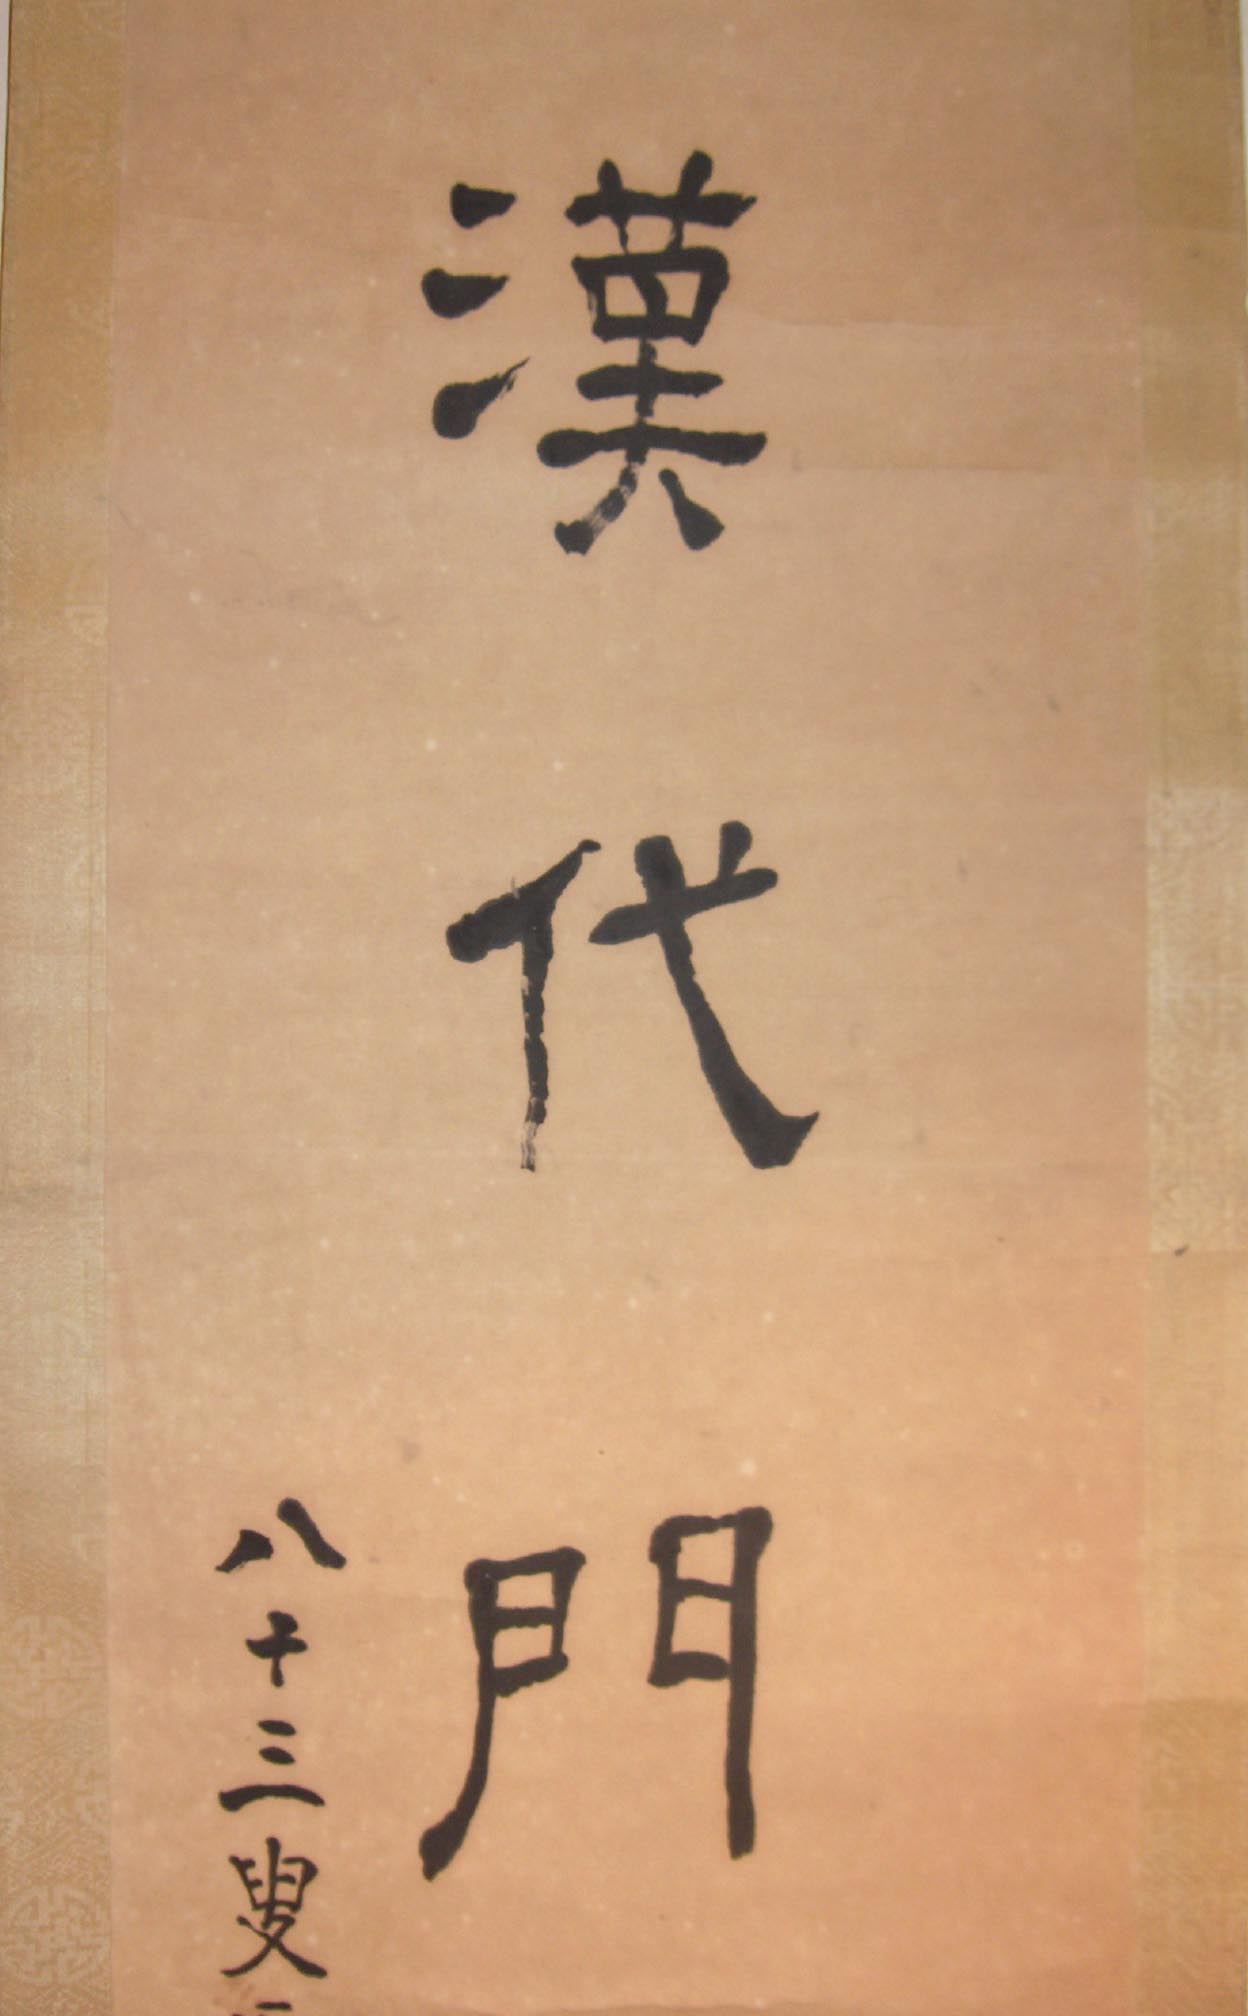 漢代門
八十三叟